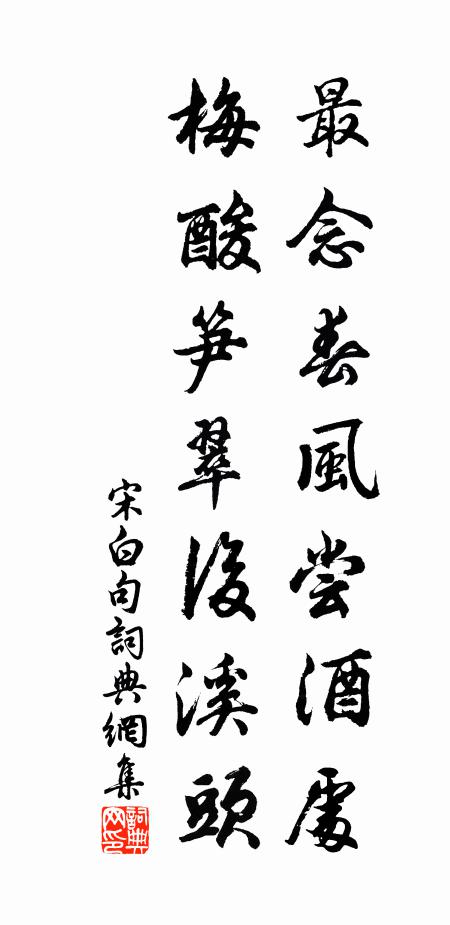 最念春風尝酒處
梅酸笋翠後溪頭
宋白句詞典網集
詞典网印